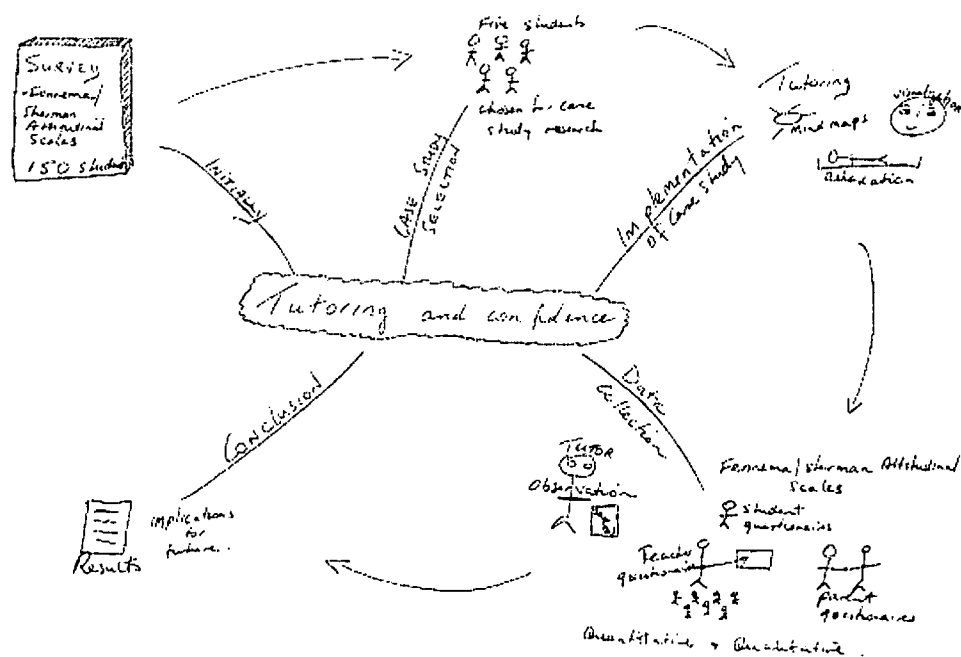 SURVEY
- Fennema/
Sherman
Attitudinal
Scales
150 Students
INITIALLY
Five students
chosen for case
study research
CASE STUDY
SELECTION
Tutoring
Mind maps
Visualization
Relaxation
Implementation
of Case study
Tutoring and confidence
Data
Collection
Fennema/Sherman Attitudinal
Scales
Student
questionaries
Teacher
questionaire
Parent
questionaires
Quantitative + Qualitative.
TUTOR
Observation
CONCLUSION
Results
implications
for
future..